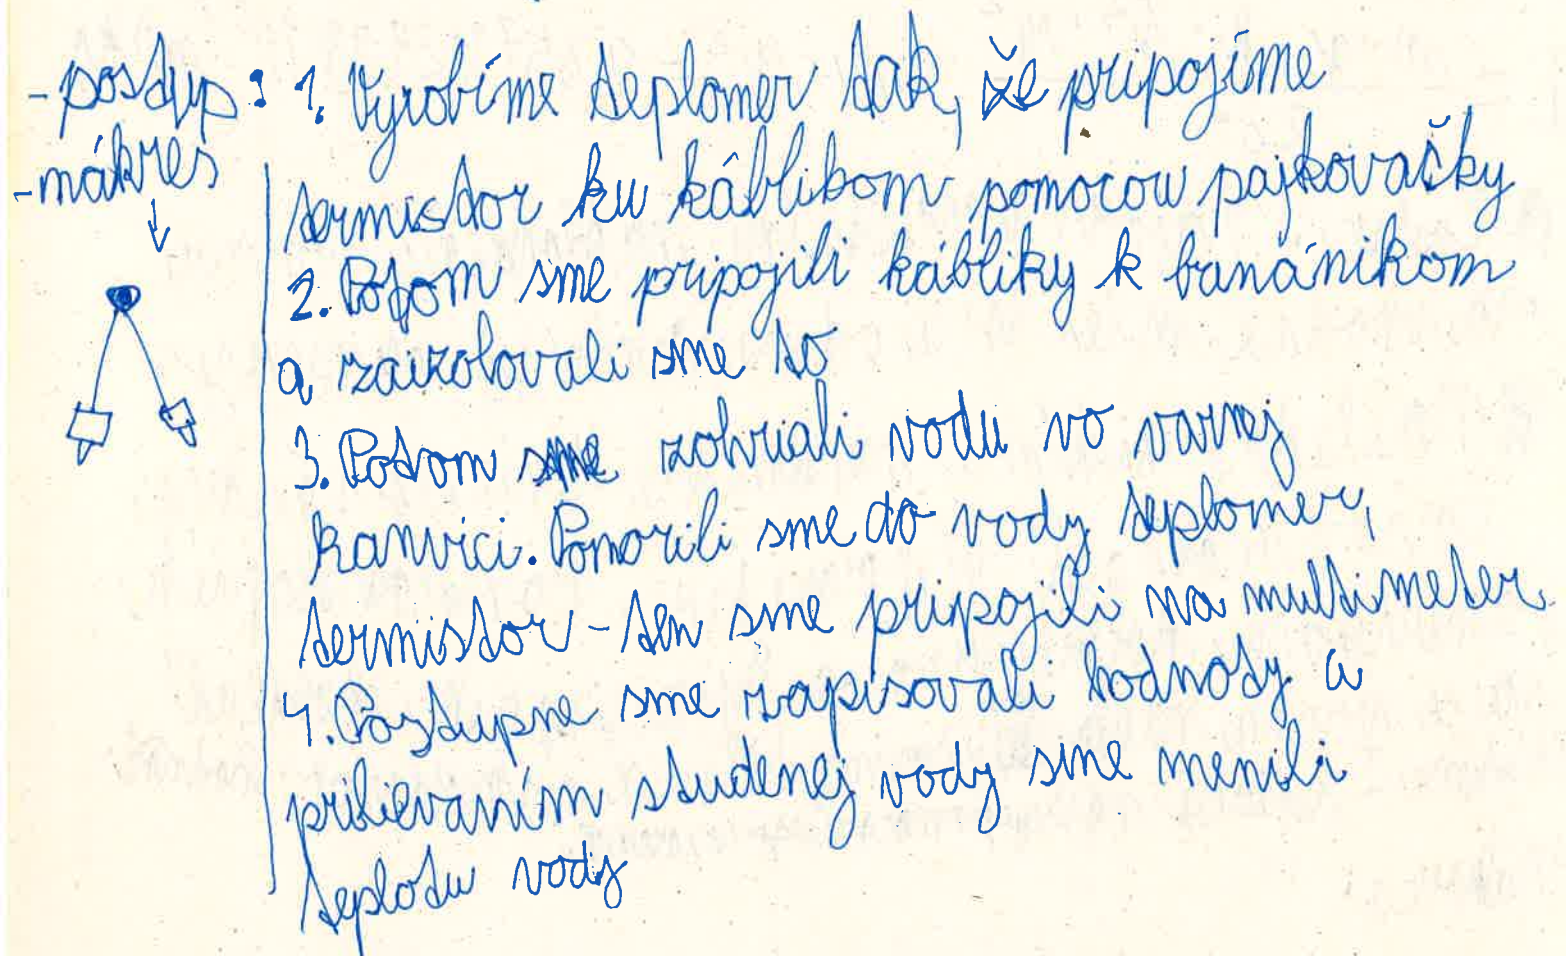 - postup : 1. Vyrobíme teplomer tak, že pripojíme
- nákres
termistor ku káblikom pomocou pajkovačky
2. Potom sme pripojili kábliky k banánikom
a zaizolovali sme to
3. Potom sme zohriali vodu vo varnej
kanvici. Ponorili sme do vody teplomer,
termistor - ten sme pripojili na multimeter
4. Postupne sme zapisovali hodnoty a
prilievaním studenej vody sme menili
teplotu vody